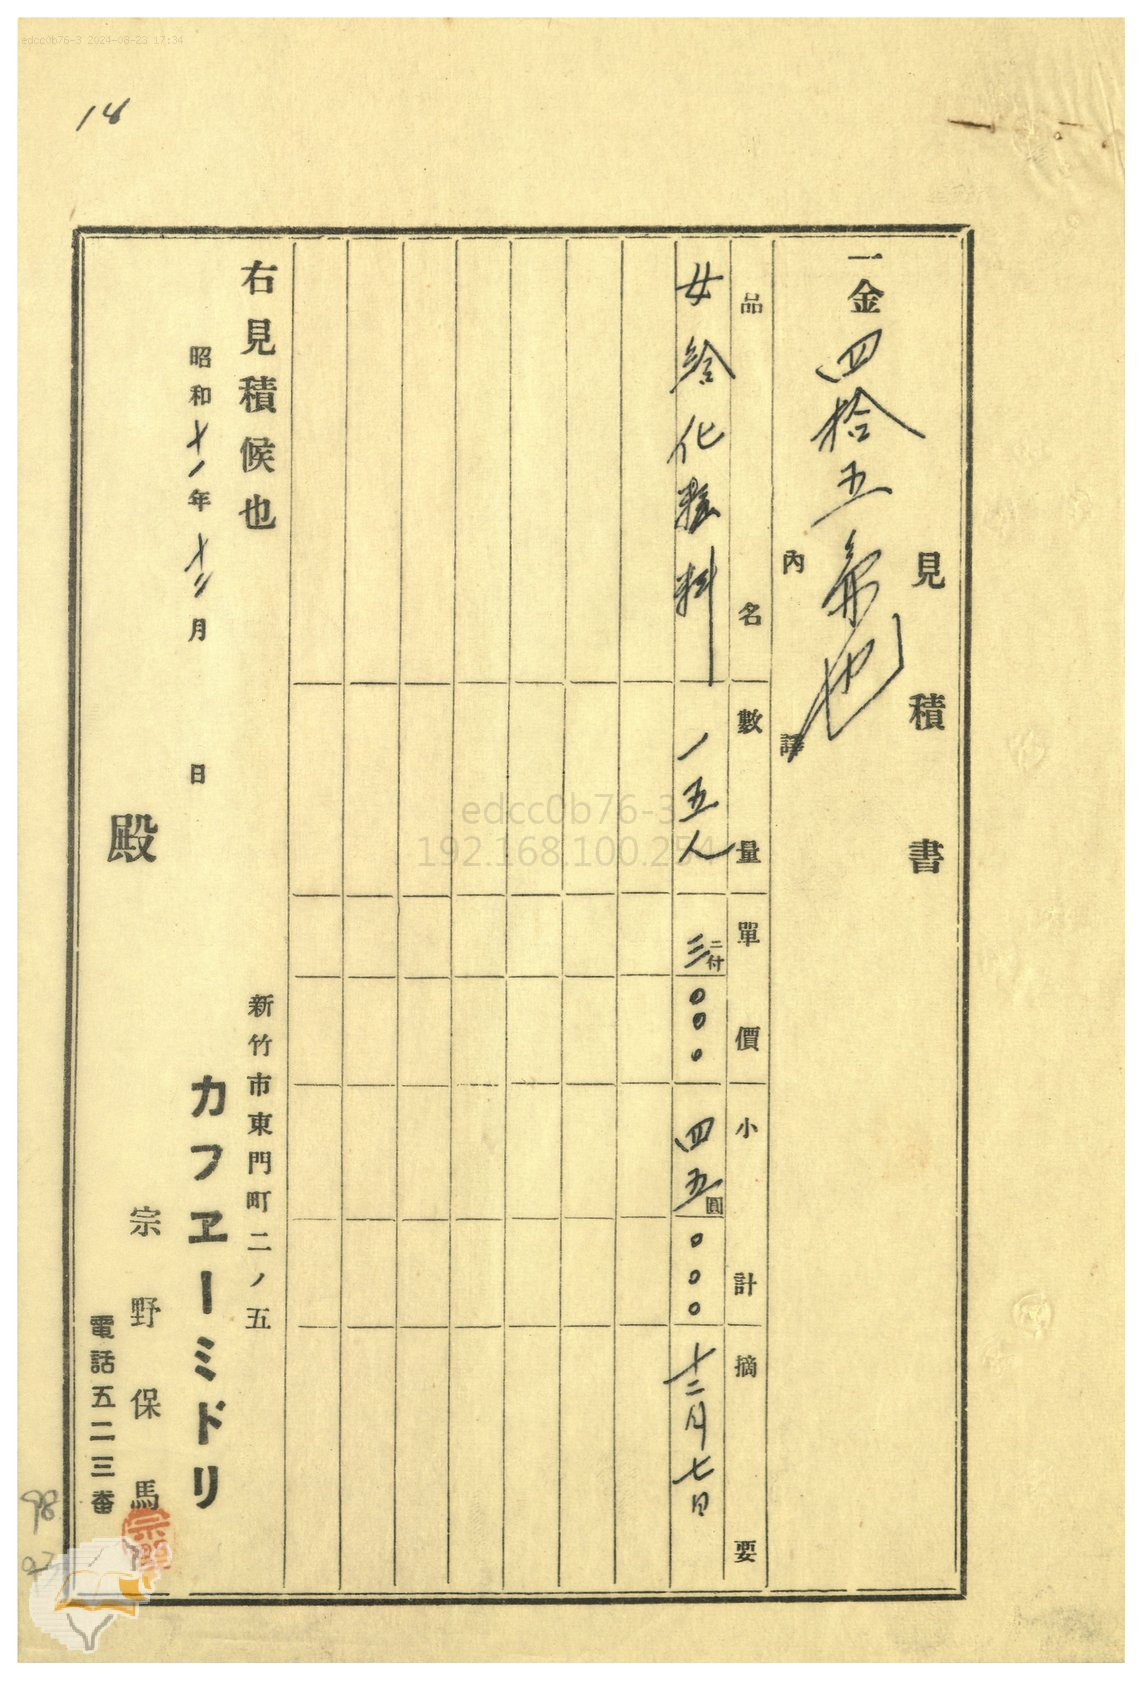 edcc0b76-3 2024-08-23 17:34
18
見積書
一金四拾五弗也
內譯
品名 數量 單價 小計 摘要
女給化粧料 一五人 三二付〇〇〇 四五圓〇〇〇 十二月七日
右見積候也
昭和十一年十二月 日
新竹市東門町二ノ五
カフヱーミドリ
宗野保馬
電話五二三番
殿
edcc0b76-3
192.168.100.254